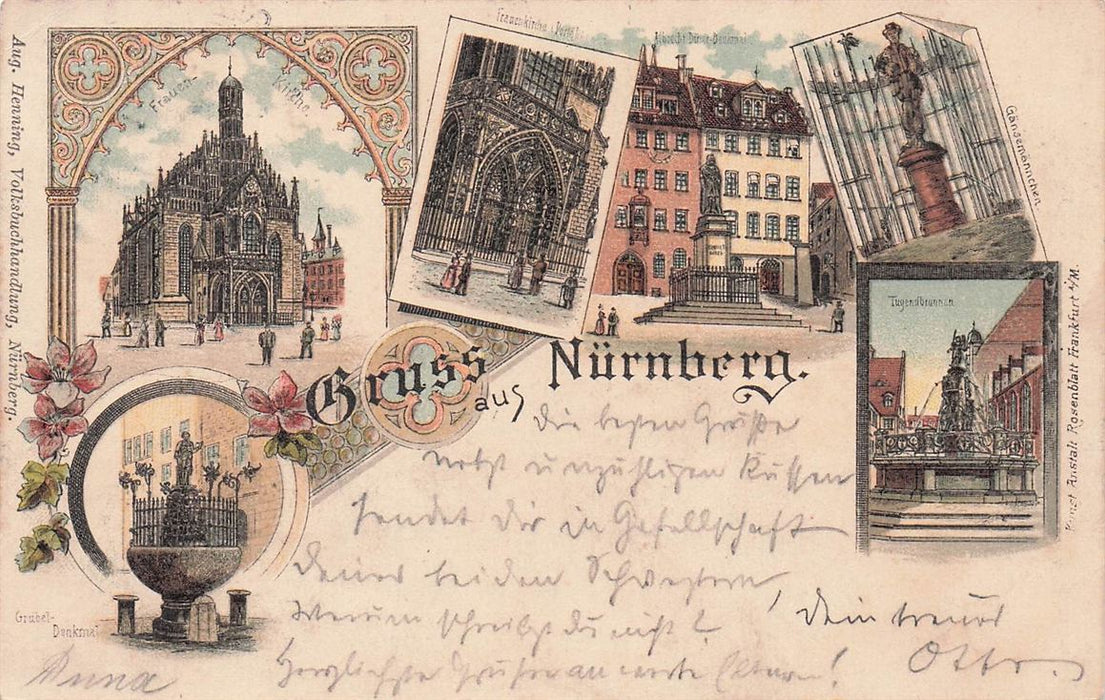 Aug. Henning, Volksbuchhandlung, Nürnberg.
Frauen-Kirche
Frauenkirche (Portal)
Albrecht Dürer-Denkmal
Gänsemännchen
Tugendbrunnen
Kunst Anstalt Rosenblatt Frankfurt a/M.
Gruss aus Nürnberg.
Grübel-
Denkmal
Die besten Grüsse
nebst unzähligen Küssen
sendet Dir in Gesellschaft
Deiner beiden Schwestern!
Warum schreibst du nicht?
Herzlichste Grüsse an werte Eltern!
Dein treuer
Otto.
Anna